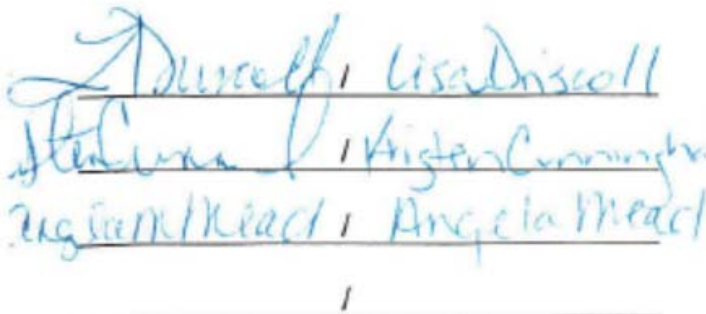 LDriscoll / Lisa Driscoll
/ Kristen Cunningha
AngelaMMead / Angela Mead
/